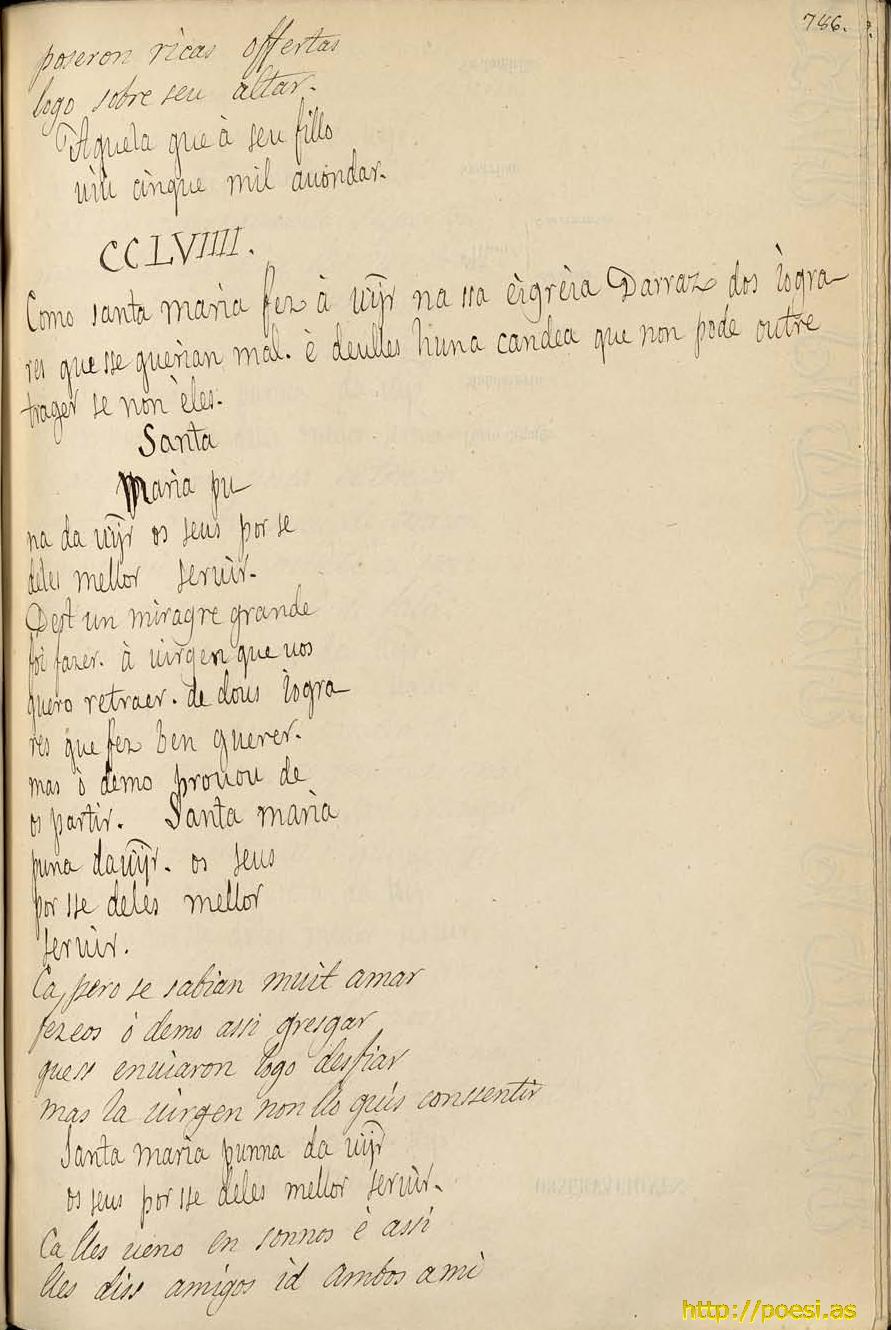 786.
poseron ricas offertas
logo sobre seu altar.
Aquela que à seu fillo
uiu cinque mil auondar.
CCLVIIII.
Como santa maria fez à uĩjr na ssa eigreia Darraz dos iogra
res que sse querian mal. è deulles huna candea que non pode outre
trager se non eles.
Santa
Maria pu
na da uĩjr os seus por se
deles mellor seruir.
Dest un miragre grande
foi fazer. à uirgen que uos
quero retraer. de dous iogra
res que fez ben querer.
mas ò demo prouou de
os partir. Santa maria
puna dauĩjr. os seus
por sse deles mellor
seruir.
Ca, pero se sabian muit amar
fezeos ò demo assi gresgar
quess enuiaron logo desfiar
mas la uirgen non llo quis conssentir
Santa maria punna da uĩjr
os seus por sse deles mellor seruir.
Ca lles ueno en sonnos è assi
lles diss amigos id ambos a mi
http://poesi.as